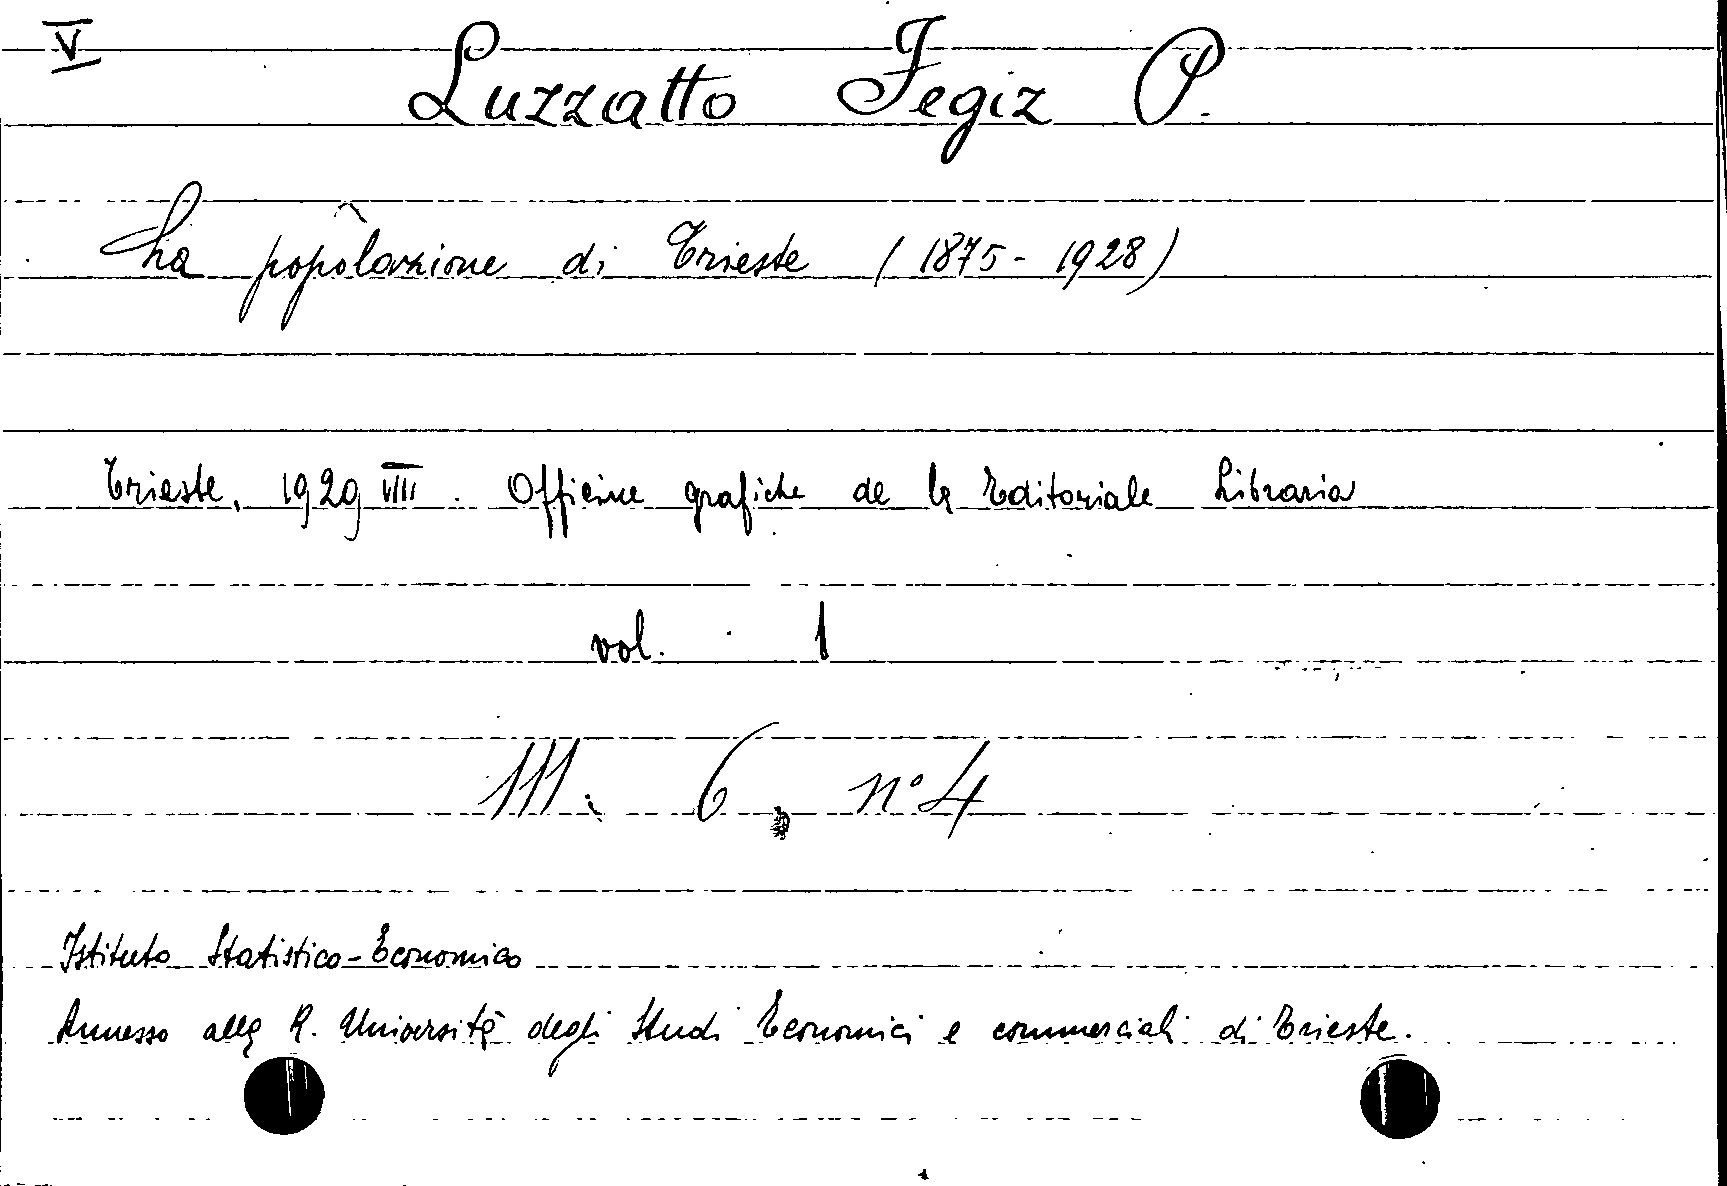 V
Luzzatto Fegiz P.
La popolazione di Trieste (1875-1928)
Trieste, 1929 VIII. Officine grafiche de la Editoriale Libraria
vol. 1
III. 6, n° 4
Istituto Statistico-Economico
Annesso alla R. Università degli Studi Economici e commerciali di Trieste.